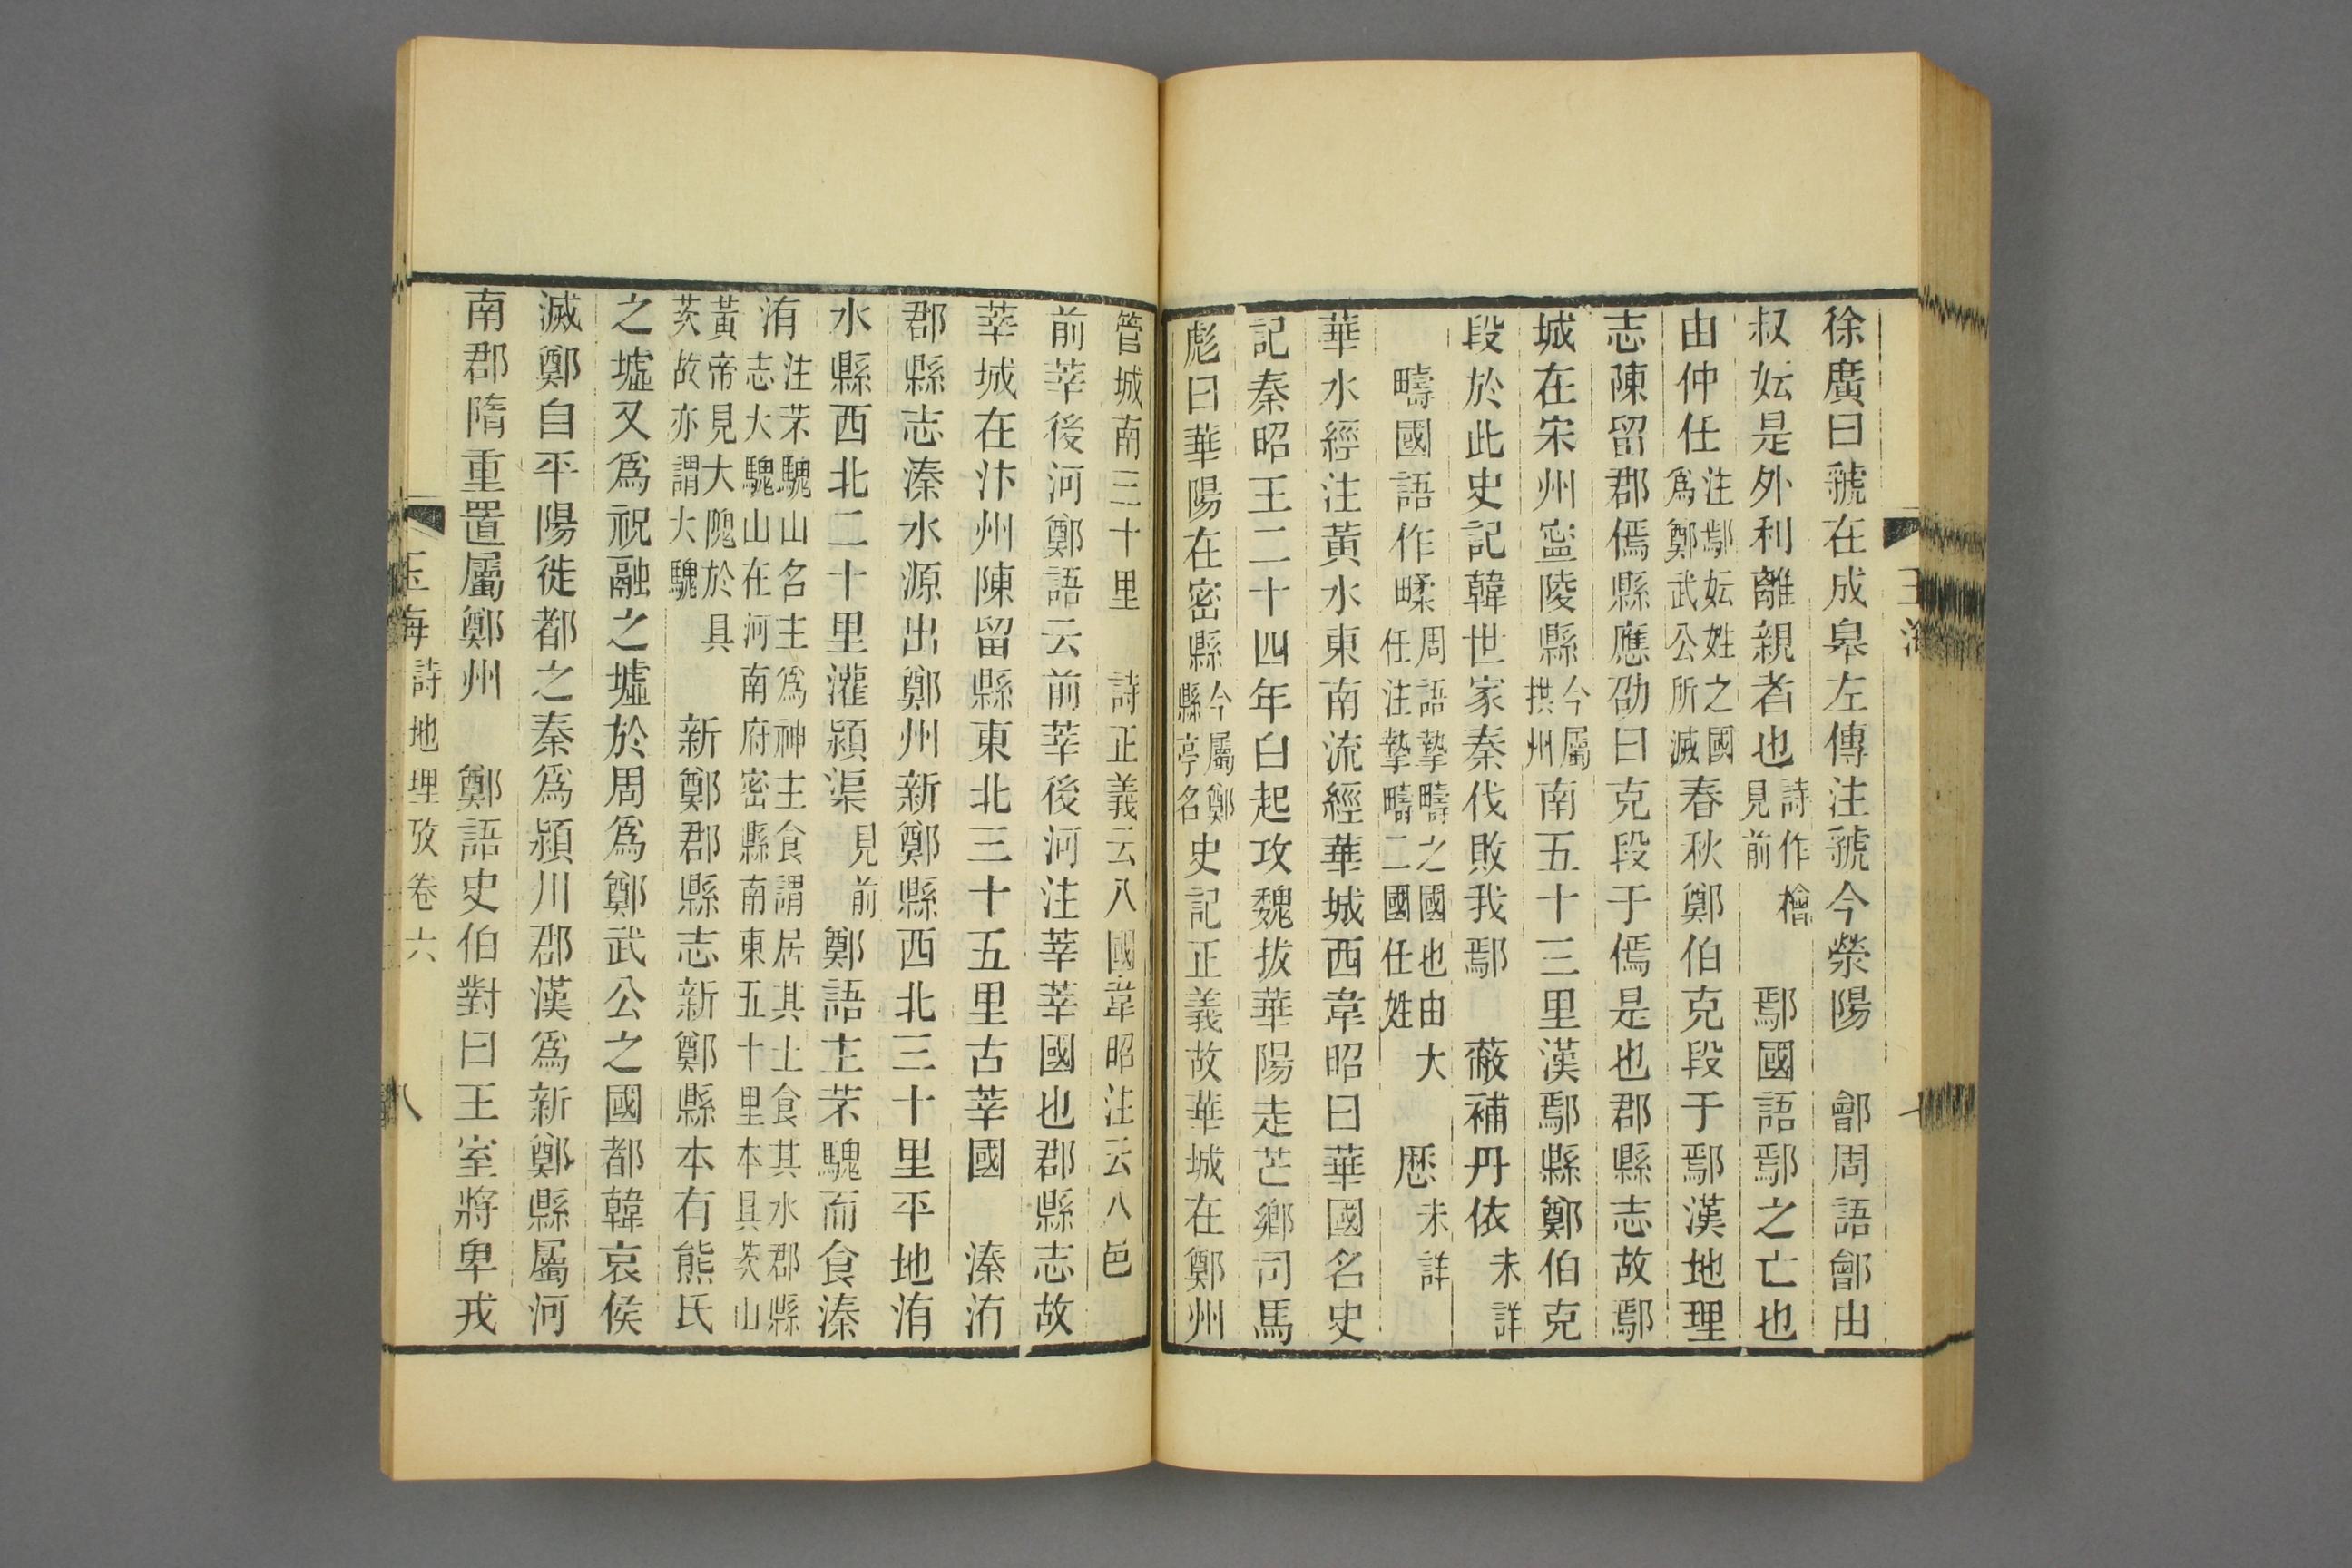 徐廣曰虢在成皋左傳注虢今滎陽　鄶周語鄶由
叔妘是外利離親者也詩作檜見前　鄢國語鄢之亡也
由仲任注鄢妘姓之國爲鄭武公所滅春秋鄭伯克段于鄢漢地理
志陳留郡傿縣應劭曰克段于傿是也郡縣志故鄢
城在宋州寍陵縣今屬拱州南五十三里漢鄢縣鄭伯克
段於此史記韓世家秦伐敗我鄢　蔽補丹依未詳
疇國語作𤲬周語摯疇之國也由大任注摯疇二國任姓　歷未詳
華水經注黃水東南流經華城西韋昭曰華國名史
記秦昭王二十四年白起攻魏拔華陽走芒鄉司馬
彪曰華陽在密縣今屬鄭縣亭名史記正義故華城在鄭州
管城南三十里　詩正義云八國韋昭注云八邑
前莘後河鄭語云前莘後河注莘莘國也郡縣志故
莘城在汴州陳留縣東北三十五里古莘國　溱洧
郡縣志溱水源出鄭州新鄭縣西北三十里平地洧
水縣西北二十里灌潁渠見前　鄭語主芣騩而食溱
洧注芣騩山名主爲神主食謂居其土食其水郡縣志大騩山在河南府密縣南東五十里本具茨山
黃帝見大隗於具茨故亦謂大騩　新鄭郡縣志新鄭縣本有熊氏
之墟又爲祝融之墟於周爲鄭武公之國都韓哀侯
滅鄭自平陽徙都之秦爲潁川郡漢爲新鄭縣屬河
南郡隋重置屬鄭州　鄭語史伯對曰王室將卑戎
玉海　詩地理攷卷六　八